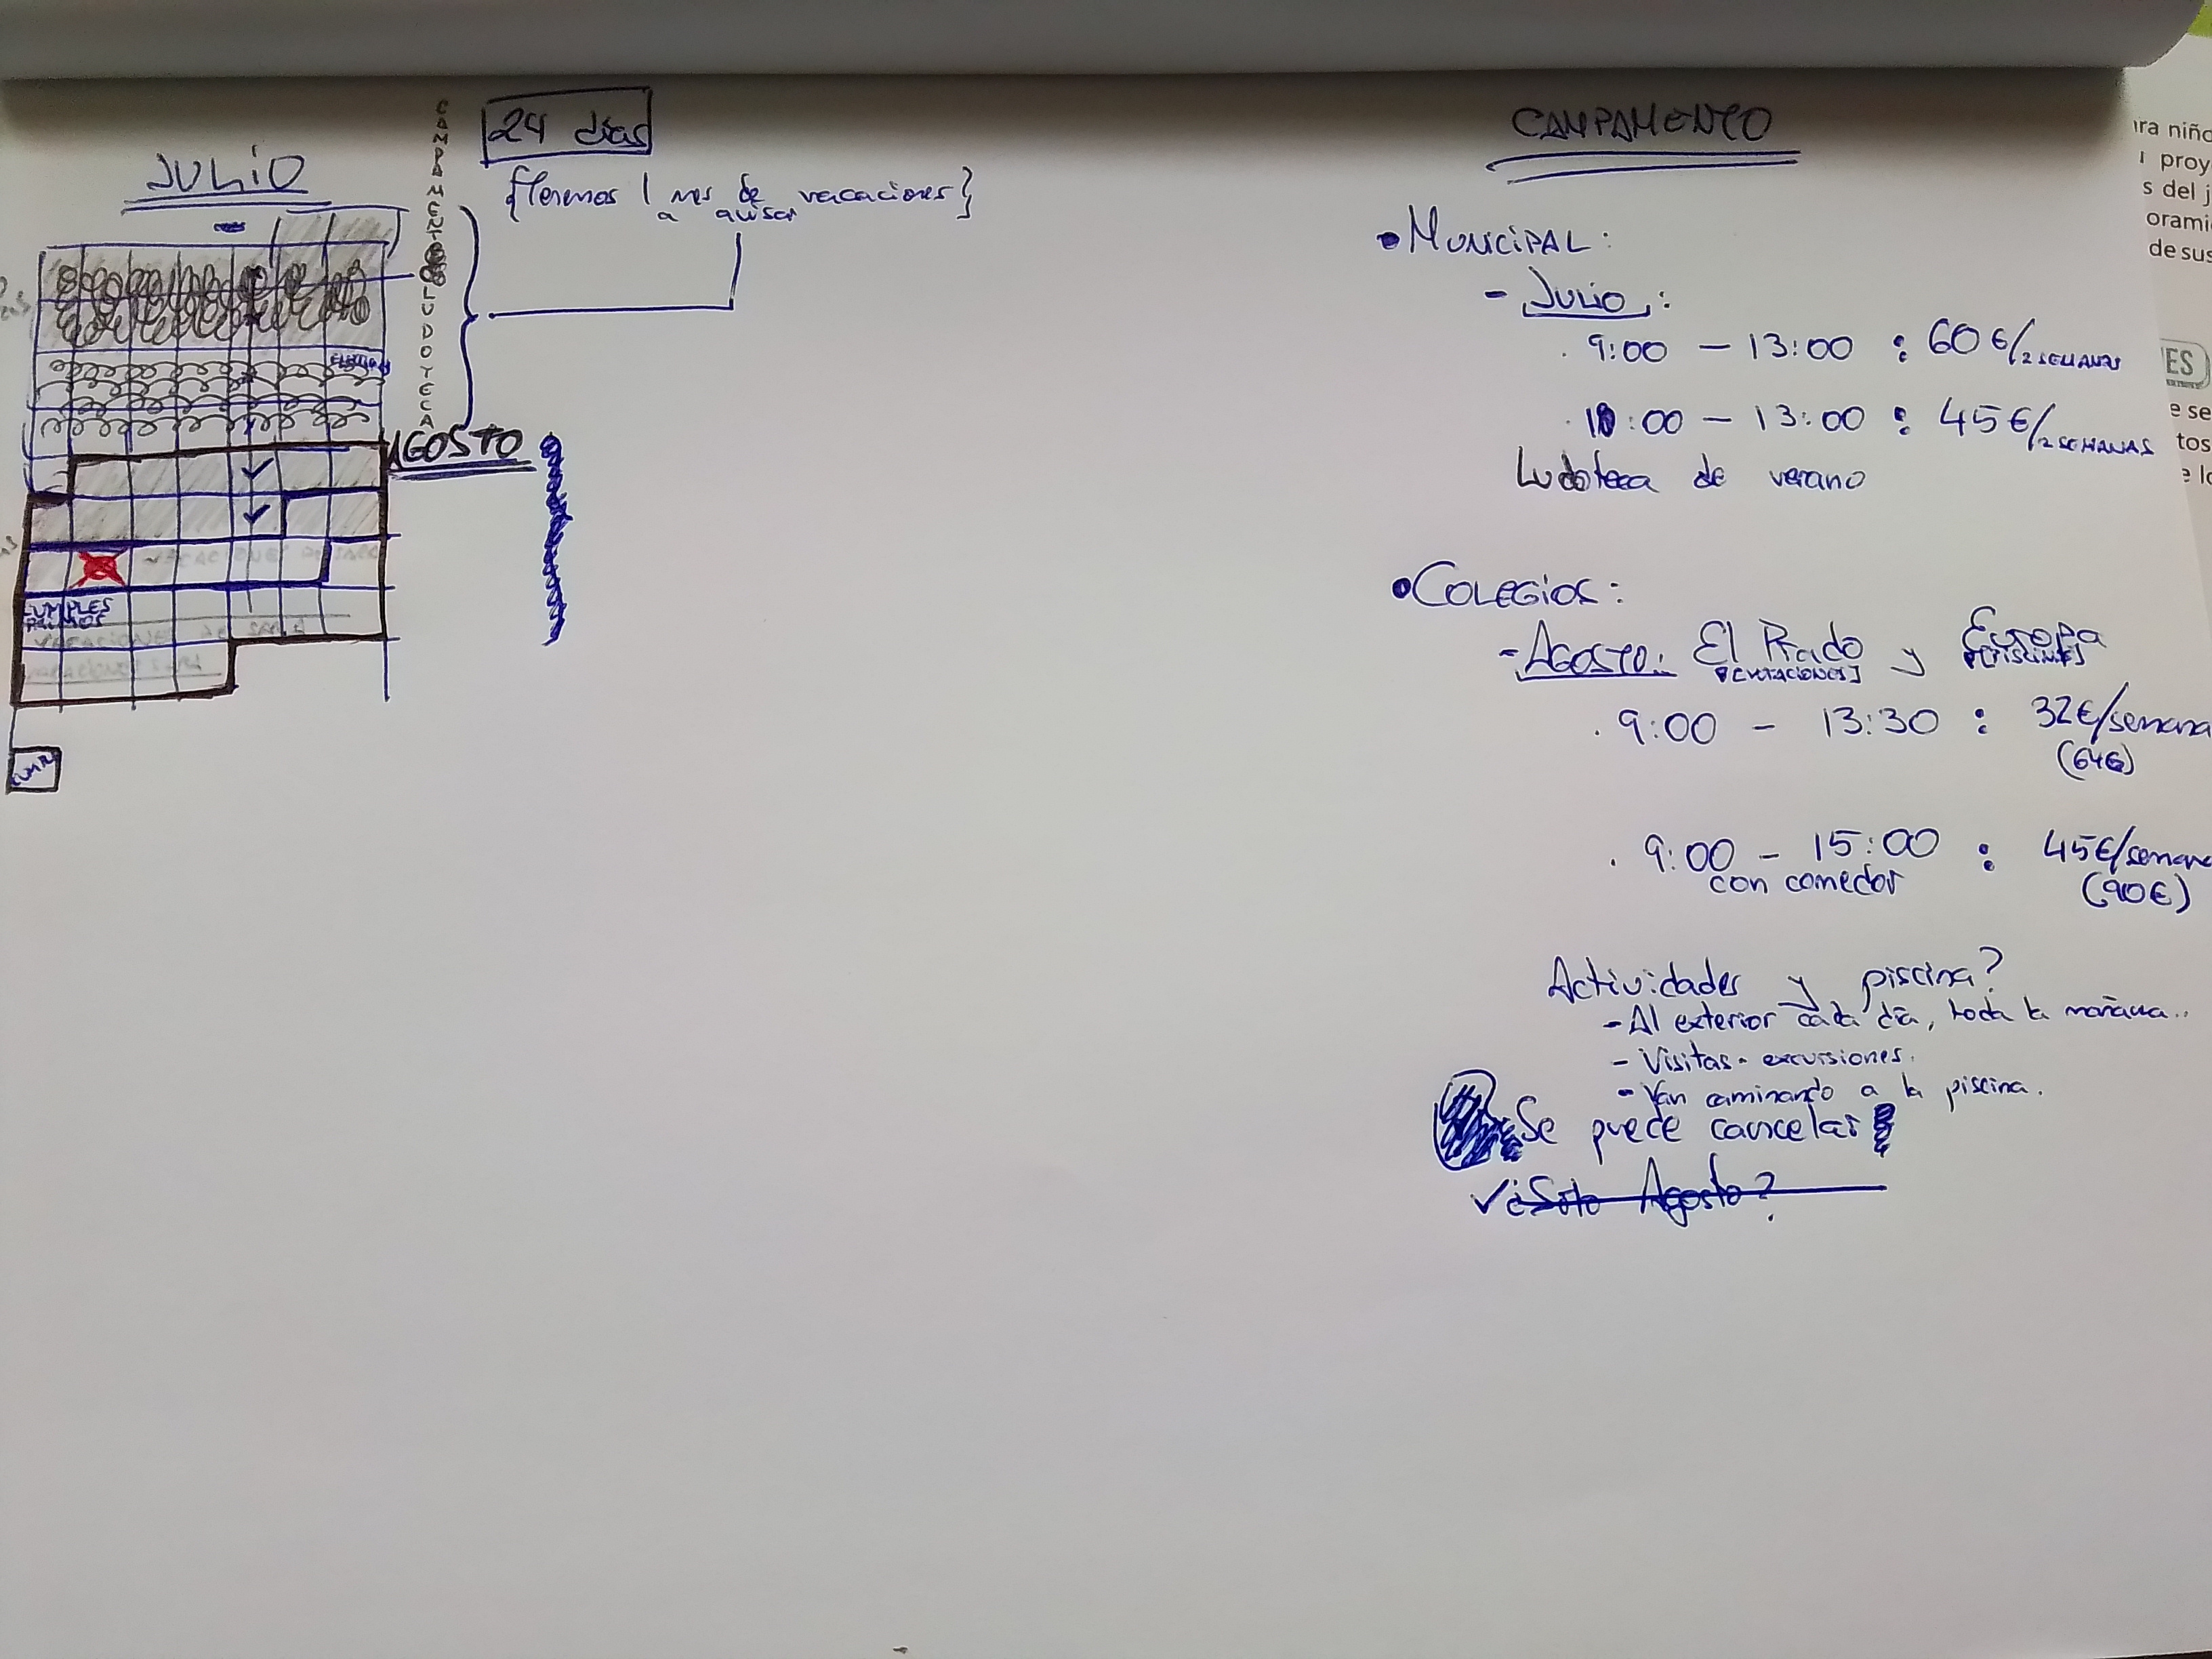 JULIO
CAMPAMENTO
LUDOTECA
24 días
{Tenemos 1 mes de vacaciones}
a avisar
AGOSTO
CUMPLES
VACACIONES
CAMPAMENTO
• MUNICIPAL:
- JULIO:
. 9:00 - 13:00 : 60€/2 SEMANAS
. 10:00 - 13:00 : 45€/2 SEMANAS
Ludoteca de verano
• COLEGIOS:
- AGOSTO: El Prado y Europa
[PISCINA]
. 9:00 - 13:30 : 32€/semana
(64€)
. 9:00 - 15:00 : 45€/semana
con comedor (90€)
Actividades y piscina?
- Al exterior cada día, toda la mañana..
- Visitas - excursiones.
- Van caminando a la piscina.
Se puede cancelar
✓ ¿Solo Agosto?
ara niño
proy
s del j
orami
de sus
ES
e se
tos
e lo